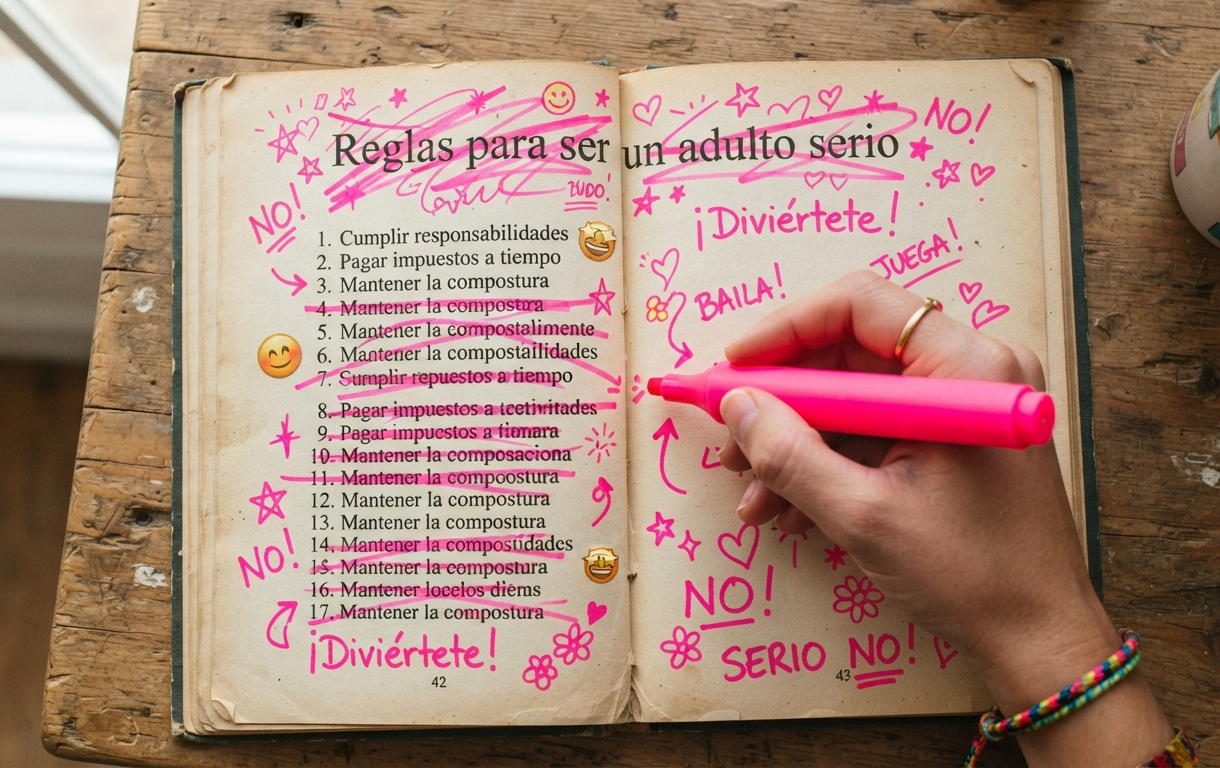 Reglas para ser un adulto serio
NO!
1. Cumplir responsabilidades
2. Pagar impuestos a tiempo
3. Mantener la compostura
4. Mantener la compostura
5. Mantener la compostalimente
6. Mantener la compostailidades
7. Sumplir repuestos a tiempo
8. Pagar impuestos a tcetivitades
9. Pagar impuestos a timara
10. Mantener la composaciona
11. Mantener la compoostura
12. Mantener la compostura
13. Mantener la compostura
14. Mantener la compostudades
15. Mantener la compostura
16. Mantener locelos diems
17. Mantener la compostura
NO!
¡Diviértete!
42
NO!
¡Diviértete!
JUEGA!
BAILA!
NO!
SERIO NO!
43